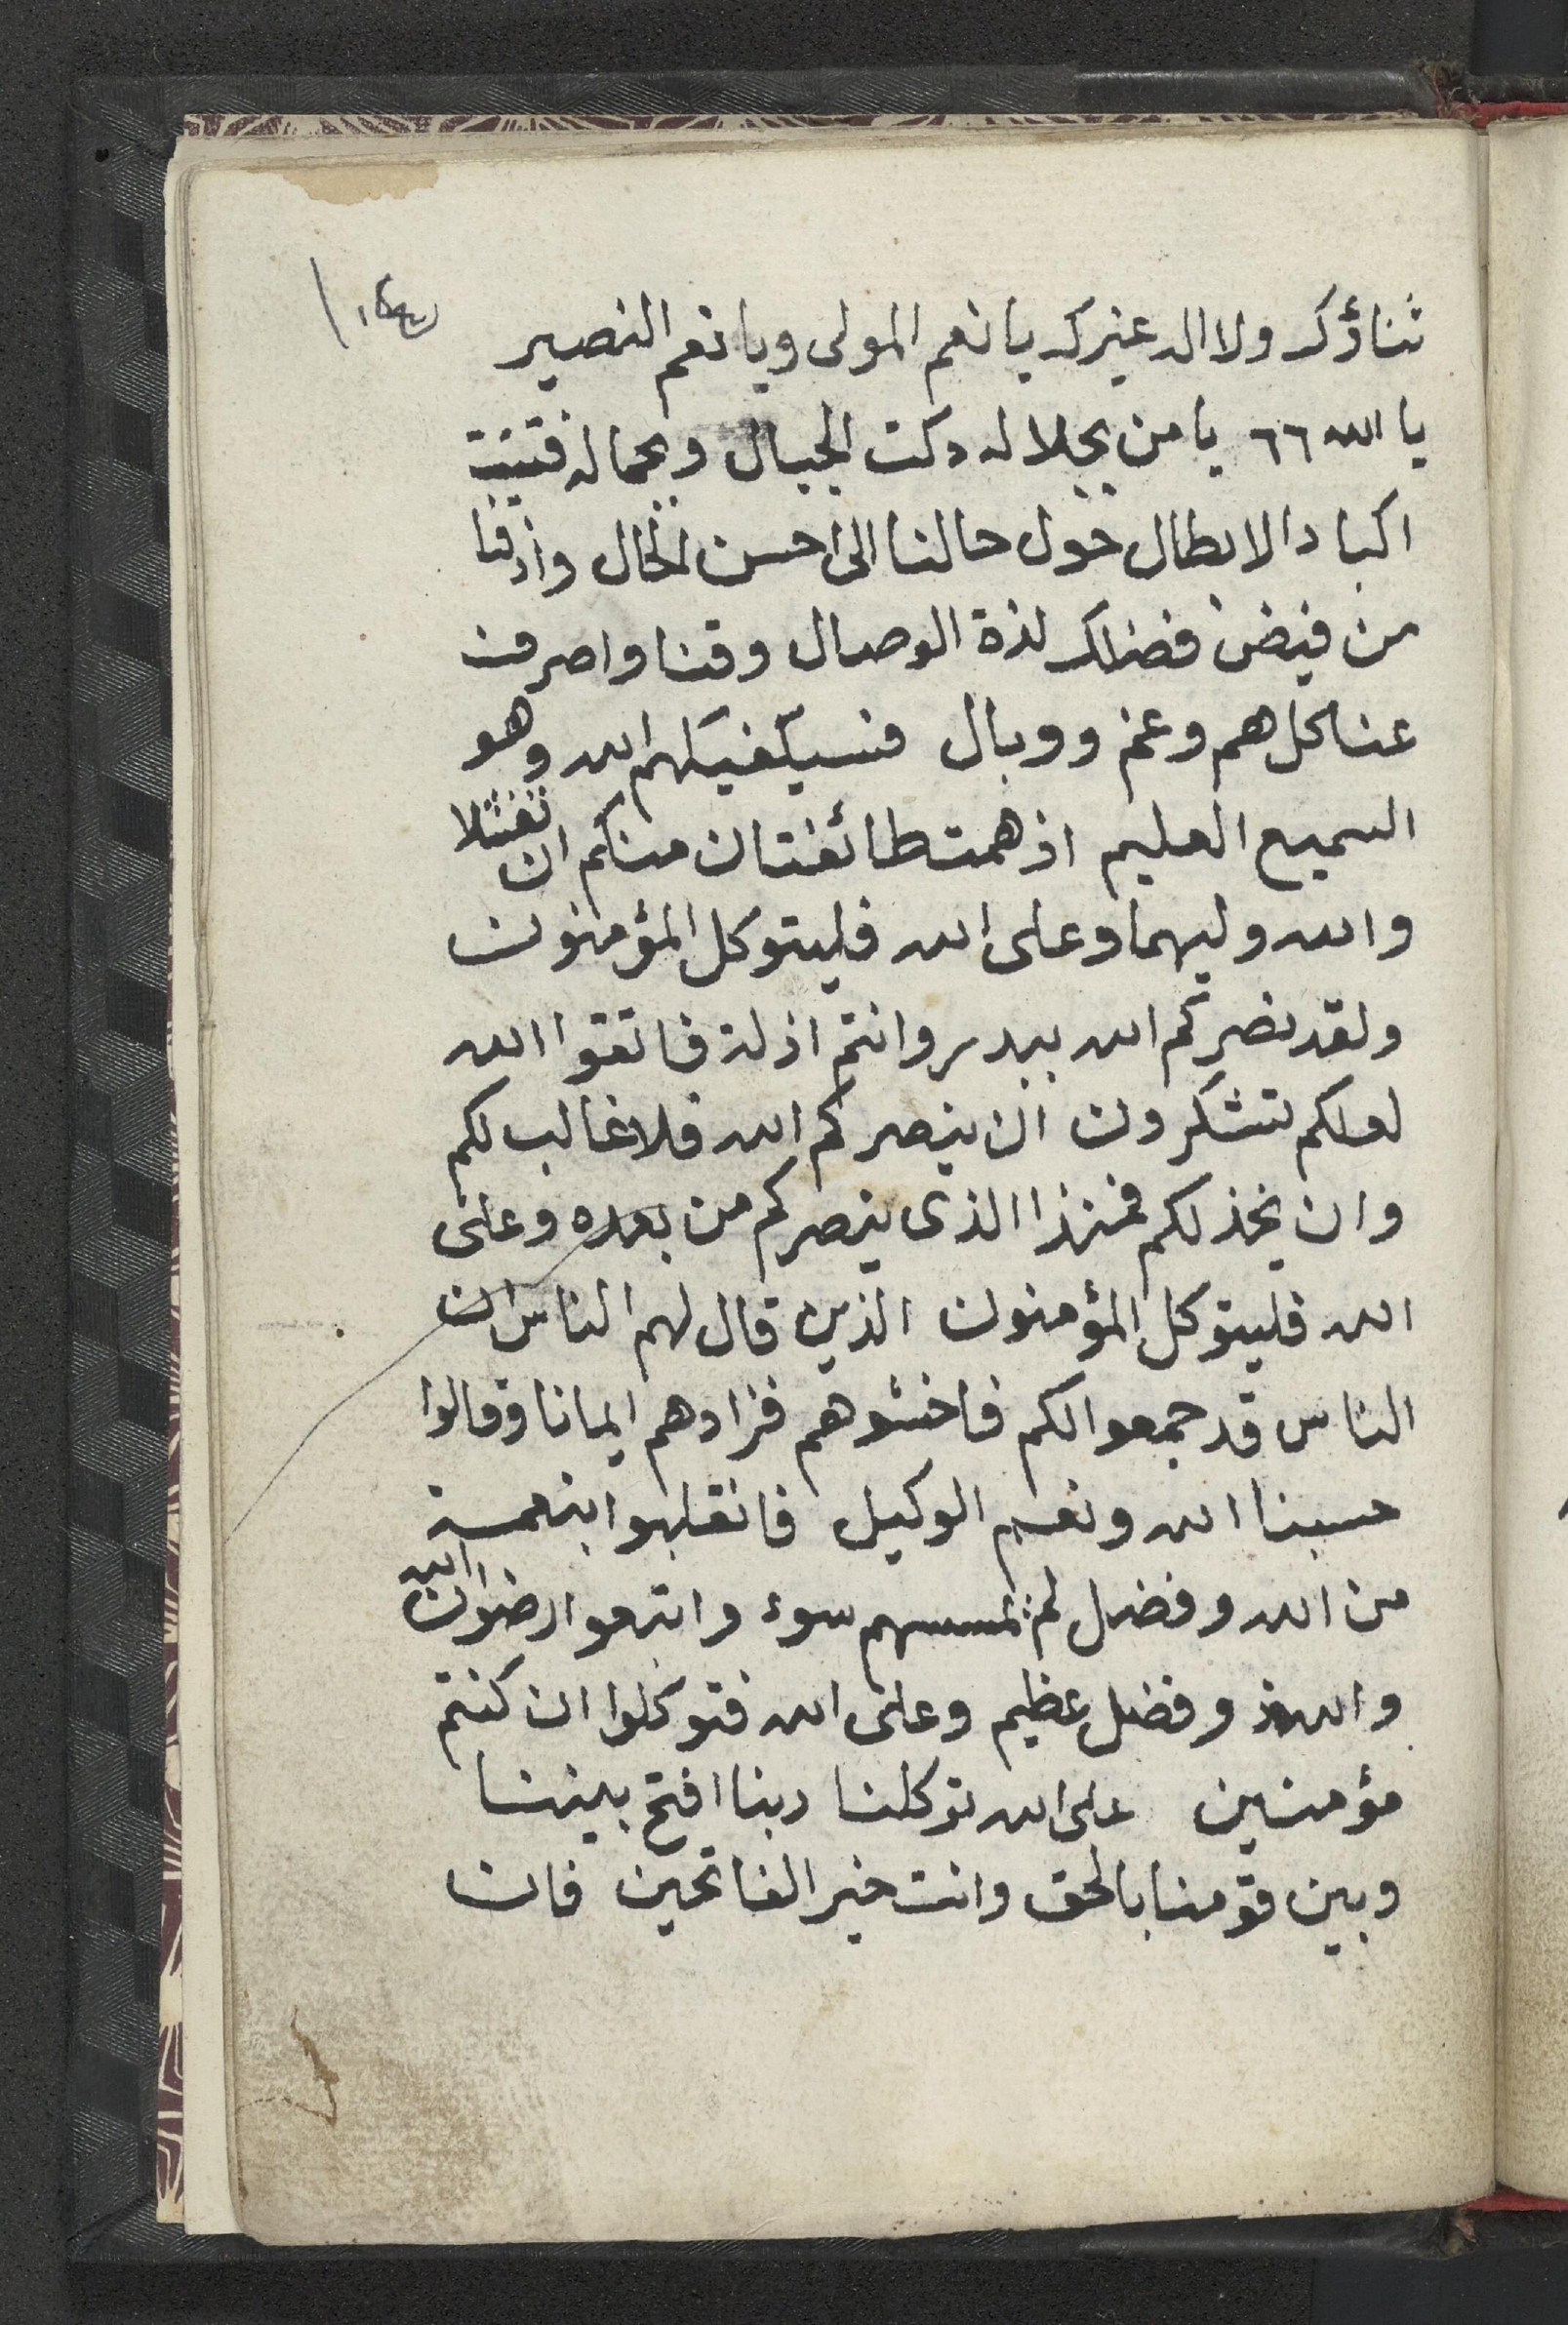 ثناؤك ولا اله غيرك يا نعم المولى ويا نعم النصير
يا الله ٦٦ يا من بجلاله دكت الجبال وبجماله فتتت
اكباد الابطال حول حالنا الى احسن الحال واذقنا
من فيض فضلك لذة الوصال وقنا واصرف
عنا كل هم وغم ووبال فسيكفيكهم الله وهو
السميع العليم اذ همت طائفتان منكم ان تفشلا
والله وليهما وعلى الله فليتوكل المؤمنون
ولقد نصركم الله ببدر وانتم اذلة فاتقوا الله
لعلكم تشكرون ان ينصركم الله فلا غالب لكم
وان يخذلكم فمنذا الذى ينصركم من بعده وعلى
الله فليتوكل المؤمنون الذين قال لهم الناس ان
الناس قد جمعوا لكم فاخشوهم فزادهم ايمانا وقالوا
حسبنا الله ونعم الوكيل فانقلبوا بنعمة
من الله وفضل لم يمسسهم سوء واتبعوا رضوان الله
والله ذو فضل عظيم وعلى الله فتوكلوا ان كنتم
مؤمنين على الله توكلنا ربنا افتح بيننا
وبين قومنا بالحق وانت خير الفاتحين فان